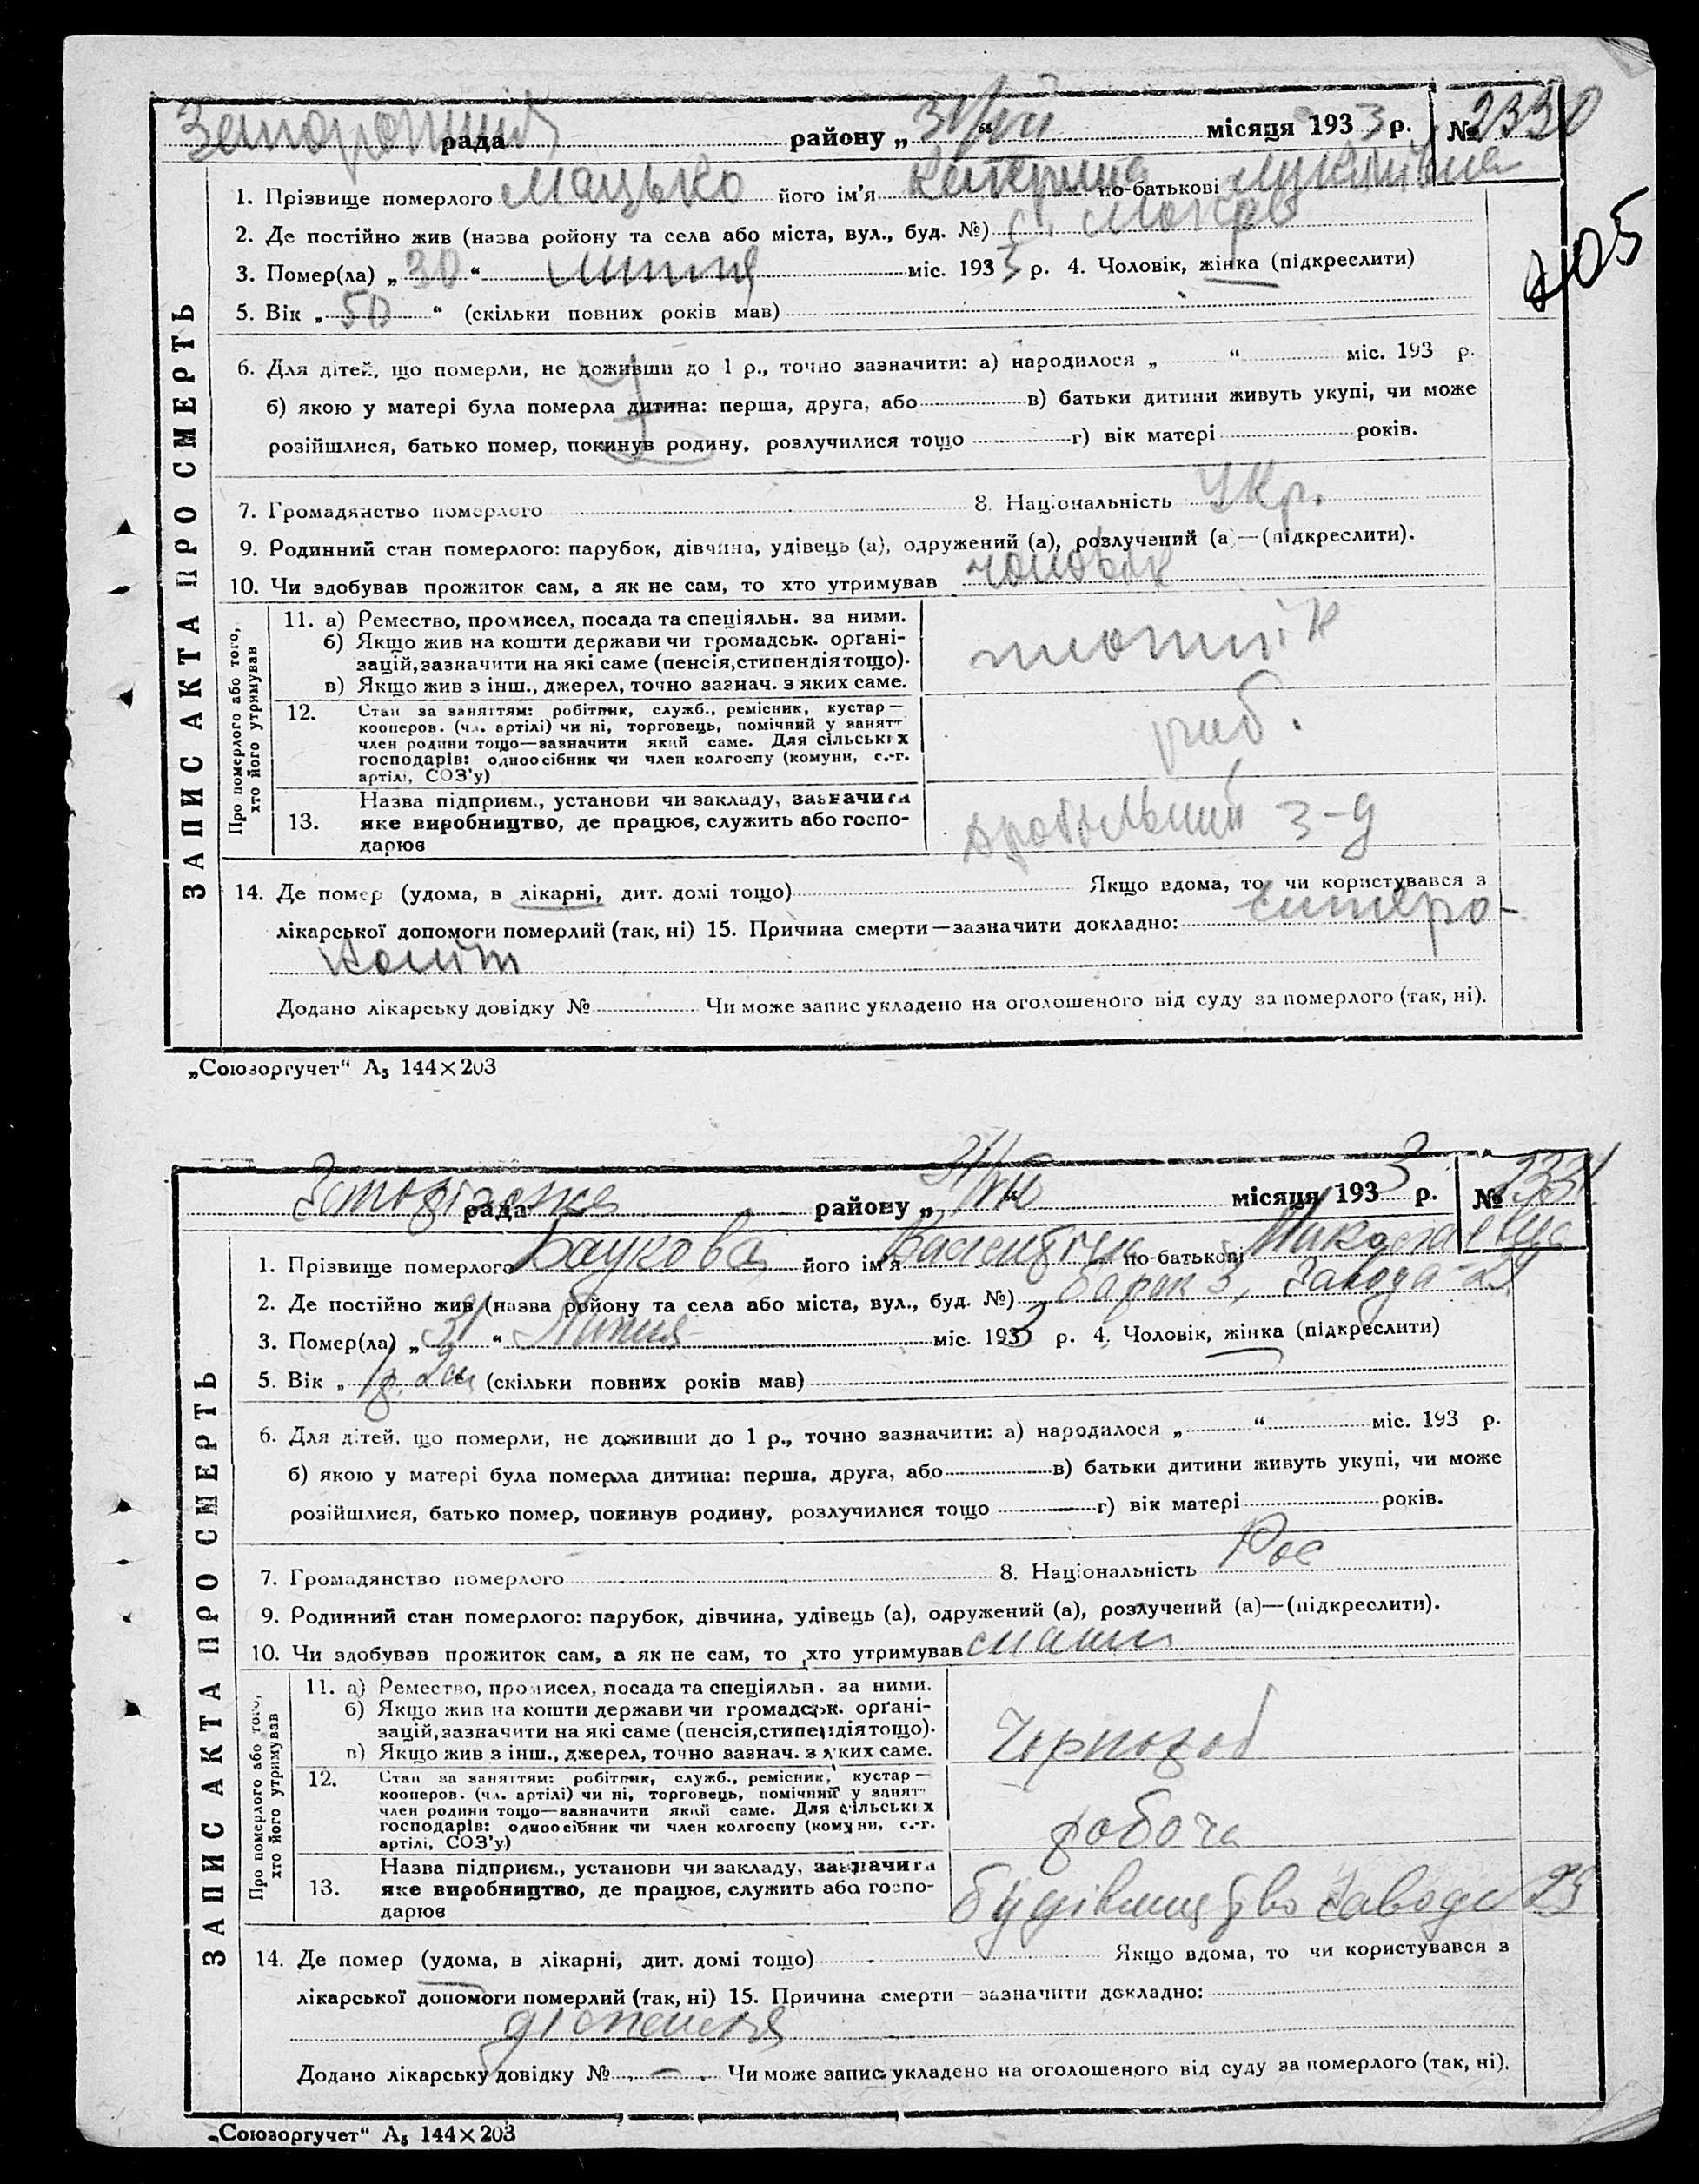 рада району „31/VII“ місяця 1933 р. № 2330
405
ЗАПИС АКТА ПРО СМЕРТЬ
1. Прізвище померлого Мацько його ім'я Катерина по-батькові
2. Де постійно жив (назва ройону та села або міста, вул., буд. №)
3. Помер(ла) „30“ липня міс. 1933 р. 4. Чоловік, жінка (підкреслити)
5. Вік „50“ (скільки повних років мав)
6. Для дітей, що померли, не доживши до 1 р., точно зазначити: а) народилося „ “ міс. 193 р.
б) якою у матері була померла дитина: перша, друга, або в) батьки дитини живуть укупі, чи може
розійшлися, батько помер, покинув родину, розлучилися тощо г) вік матері років.
7. Громадянство померлого 8. Національність Укр.
9. Родинний стан померлого: парубок, дівчина, удівець (а), одружений (а), розлучений (а)—(підкреслити).
10. Чи здобував прожиток сам, а як не сам, то хто утримував чоловік
Про померлого або того, хто його утримував
11. а) Ремество, промисел, посада та спеціяльн. за ними.
б) Якщо жив на кошти держави чи громадськ. орґані-
зацій, зазначити на які саме (пенсія, стипендія тощо).
в) Якщо жив з інш., джерел, точно зазнач. з яких саме.
плотнік
12. Стан за заняттям: робітник, служб., ремісник, кустар—
кооперов. (чл. артілі) чи ні, торговець, помічний у занятт
член родини тощо—зазначити який саме. Для сільських
господарів: одноосібник чи член колгоспу (комуни, с.-г.
артілі, СОЗ'у)
раб.
13. Назва підприєм., установи чи закладу, зазначити
яке виробництво, де працює, служить або госпо-
дарює
з-д
14. Де помер (удома, в лікарні, дит. домі тощо) Якщо вдома, то чи користувався з
лікарської допомоги померлий (так, ні) 15. Причина смерти—зазначити докладно: ентеро-
коліт
Додано лікарську довідку № Чи може запис укладено на оголошеного від суду за померлого (так, ні).
„Союзоргучет“ А₅ 144×203
рада району „31/VII“ місяця 1933 р. № 2331
ЗАПИС АКТА ПРО СМЕРТЬ
1. Прізвище померлого Баукова його ім'я Валентина по-батькові Миколаевна
2. Де постійно жив (назва ройону та села або міста, вул., буд. №) барак 3, Завода-29
3. Помер(ла) „31“ Липня міс. 1933 р. 4. Чоловік, жінка (підкреслити)
5. Вік „1р. 2м (скільки повних років мав)
6. Для дітей, що померли, не доживши до 1 р., точно зазначити: а) народилося „ “ міс. 193 р.
б) якою у матері була померла дитина: перша, друга, або в) батьки дитини живуть укупі, чи може
розійшлися, батько помер, покинув родину, розлучилися тощо г) вік матері років.
7. Громадянство померлого 8. Національність Рос
9. Родинний стан померлого: парубок, дівчина, удівець (а), одружений (а), розлучений (а)—(підкреслити).
10. Чи здобував прожиток сам, а як не сам, то хто утримував
Про померлого або того, хто його утримував
11. а) Ремество, промисел, посада та спеціяльн. за ними.
б) Якщо жив на кошти держави чи громадськ. орґані-
зацій, зазначити на які саме (пенсія, стипендія тощо).
в) Якщо жив з інш., джерел, точно зазнач. з яких саме.
Чорнороб
12. Стан за заняттям: робітник, служб., ремісник, кустар—
кооперов. (чл. артілі) чи ні, торговець, помічний у занятт
член родини тощо—зазначити який саме. Для сільських
господарів: одноосібник чи член колгоспу (комуни, с.-г.
артілі, СОЗ'у)
робоча
13. Назва підприєм., установи чи закладу, зазначити
яке виробництво, де працює, служить або госпо-
дарює
будівництво Завода 29
14. Де помер (удома, в лікарні, дит. домі тощо) Якщо вдома, то чи користувався з
лікарської допомоги померлий (так, ні) 15. Причина смерти—зазначити докладно:
Додано лікарську довідку № — Чи може запис укладено на оголошеного від суду за померлого (так, ні).
„Союзоргучет“ А₅ 144×203